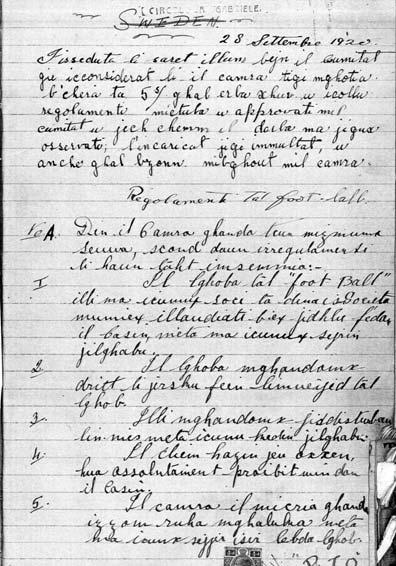 CIRCULAR GABRIELE.
SWEDEN.
28 Settembre 1920
Fisseduta li saret illum bejn il cumitat
gie icconsiderat li il camra tigi mghotia
b'chera ta 5 s/ ghal erba xhur u icollu
regolamenti mictuba u approvati mil
cumitat u jech chemm il darba ma jigux
osservati, l'incaricat jigi immultat, u
anche ghal bzonn mibghout mil camra.
Regolamenti tal foot-ball.
Den il Camra ghanda tcun mizmuma
seuua, scond daun irregulamenti
li haun taht imsemmia:-
I Il lghoba tal "foot Ball"
illi ma icunux soci ta dina is Societa
mumiex illaudiati biex jidhlu f'dan
il Casin, meta ma icunux sejrin
jilghabu.
2. Il lghoba mghandomx
dritt li jirsku feen limueijed tal
lghob.
3. Illi mghandomx jiddisturbau
lin-nies meta icunu kedin jilghabu.
4. Il chliem hazin jeu oxxen,
hua assolutament proibit min dan
il Casin.
5. Il camra il micria ghand
izzom ruha mghaluka meta
ma icunx sejjer isir labda lghob.